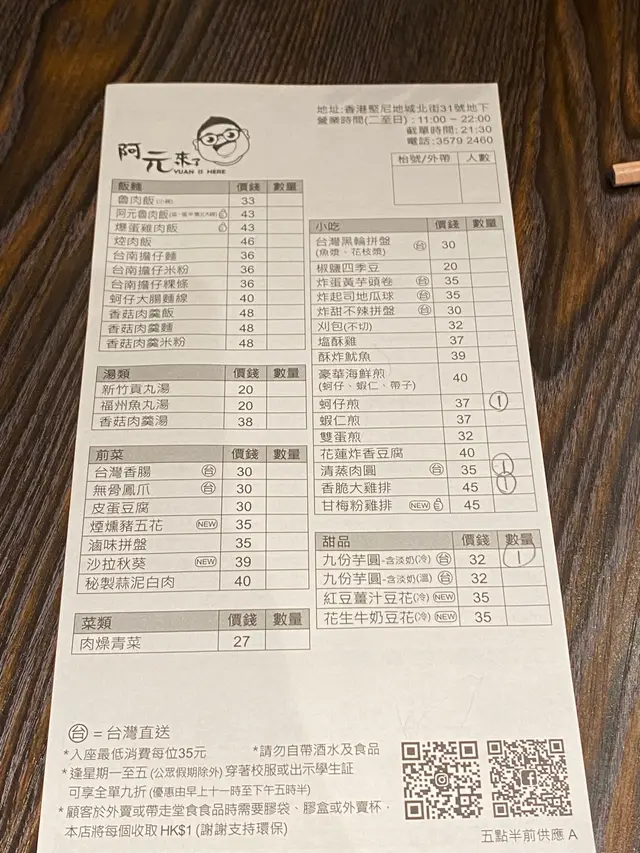 阿元來了
YUAN IS HERE
地址:香港堅尼地城北街31號地下
營業時間(二至日) : 11:00 ~ 22:00
截單時間: 21:30
電話:3579 2460
枱號/外帶 人數
飯麵 價錢 數量
魯肉飯(小碗) 33
阿元魯肉飯 43
爆蛋雞肉飯 43
焢肉飯 46
台南擔仔麵 36
台南擔仔米粉 36
台南擔仔粿條 36
蚵仔大腸麵線 40
香菇肉羹飯 48
香菇肉羹麵 48
香菇肉羹米粉 48
湯類 價錢 數量
新竹貢丸湯 20
福州魚丸湯 20
香菇肉羹湯 38
前菜 價錢 數量
台灣香腸 台 30
無骨鳳爪 台 30
皮蛋豆腐 30
煙燻豬五花 NEW 35
滷味拼盤 35
沙拉秋葵 NEW 39
秘製蒜泥白肉 40
菜類 價錢 數量
肉燥青菜 27
小吃 價錢 數量
台灣黑輪拼盤 台 30
(魚漿、花枝漿)
椒鹽四季豆 20
炸蛋黃芋頭卷 台 35
炸起司地瓜球 台 35
炸甜不辣拼盤 台 30
刈包(不切) 32
塩酥雞 37
酥炸魷魚 39
豪華海鮮煎 40
(蚵仔、蝦仁、帶子)
蚵仔煎 37 1
蝦仁煎 37
雙蛋煎 32
花蓮炸香豆腐 40
清蒸肉圓 台 35 1
香脆大雞排 45 1
甘梅粉雞排 NEW 45
甜品 價錢 數量
九份芋圓-含淡奶(冷) 台 32 1
九份芋圓-含淡奶(溫) 台 32
紅豆薑汁豆花(冷) NEW 35
花生牛奶豆花(冷) NEW 35
台 = 台灣直送
*入座最低消費每位35元 *請勿自帶酒水及食品
*逢星期一至五 (公眾假期除外) 穿著校服或出示學生証
可享全單九折 (優惠由早上十一時至下午五時半)
*顧客於外賣或帶走堂食食品時需要膠袋、膠盒或外賣杯，
本店將每個收取 HK$1 (謝謝支持環保)
五點半前供應 A